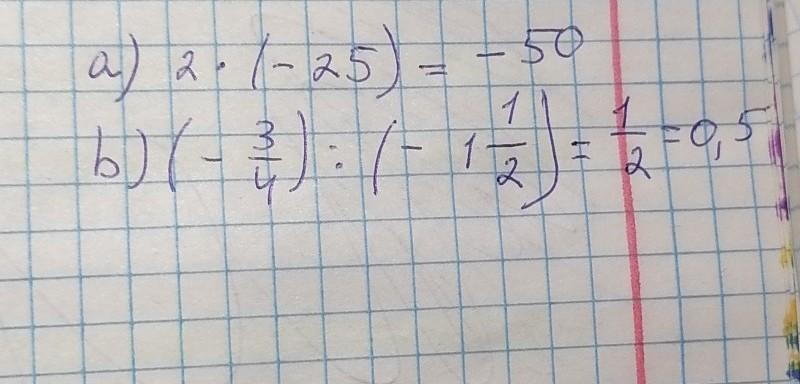 a) 2 · (- 25) = - 50
b) (- 3/4) : (- 1 1/2) = 1/2 = 0,5